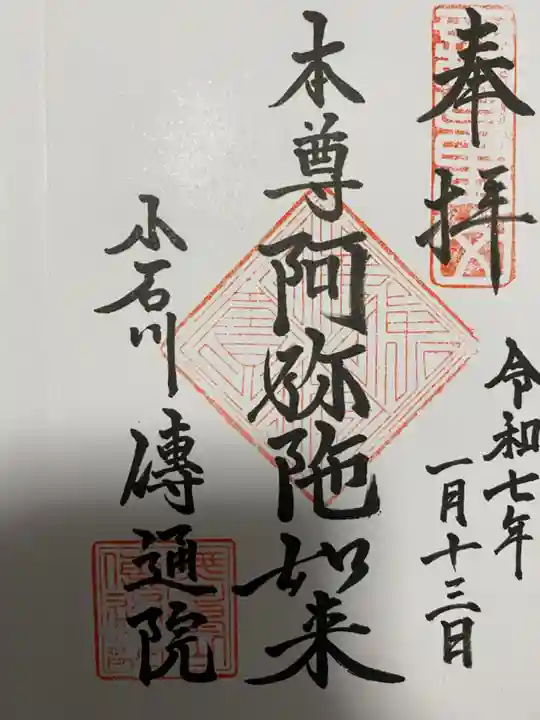 奉拝
令和七年
一月十三日
本尊阿弥陀如来
小石川
傳通院